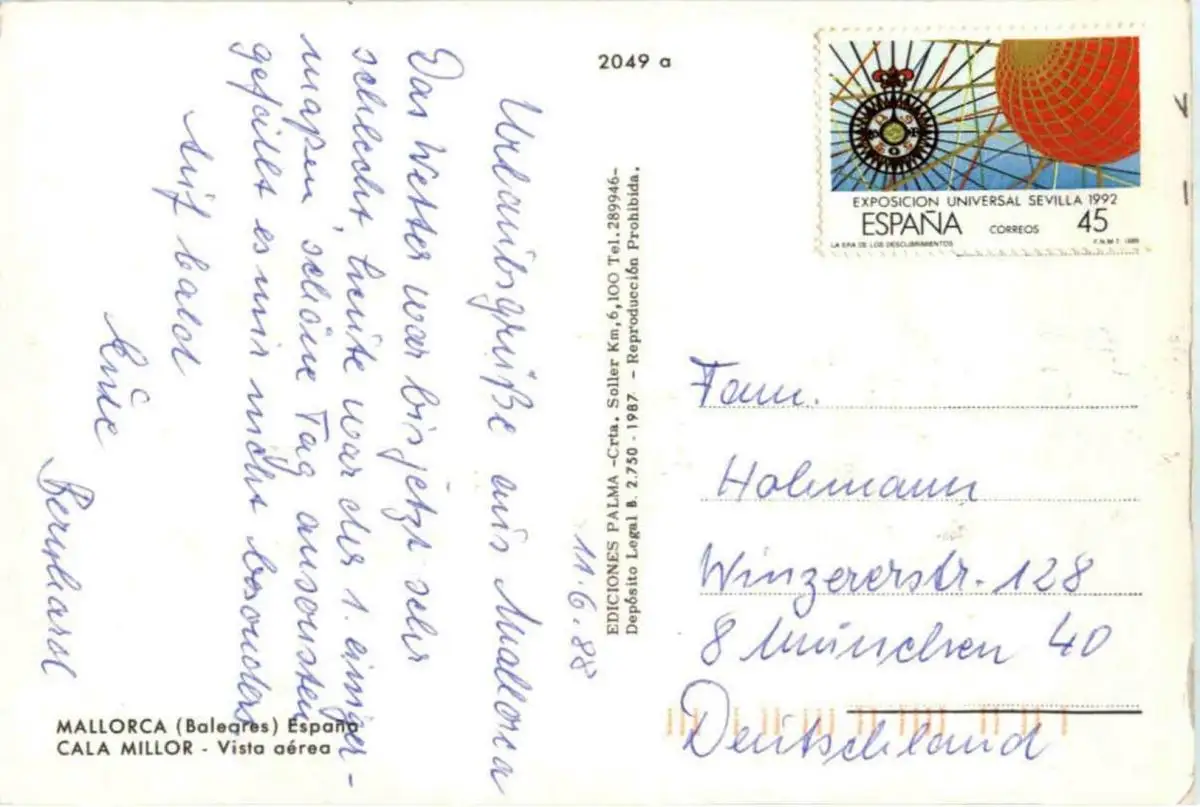 2049 a
EXPOSICION UNIVERSAL SEVILLA 1992
ESPAÑA CORREOS 45
LA ERA DE LOS DESCUBRIMIENTOS F.N.M.T.
11.6.88
Urlaubsgrüße aus Mallorca
Das Wetter war bis jetzt sehr
schlecht, heute war der 1. einiger-
maßen schöne Tag ansonsten
gefällt es mir nicht besonders
Auf bald
Bernhard
EDICIONES PALMA -Crta. Soller Km, 6,100 Tel. 289946-
Depósito Legal B. 2.750 - 1987. - Reproducción Prohibida.
Fam.
Hohmann
Winzererstr. 128
8 München 40
Deutschland
MALLORCA (Baleares) España
CALA MILLOR - Vista aérea